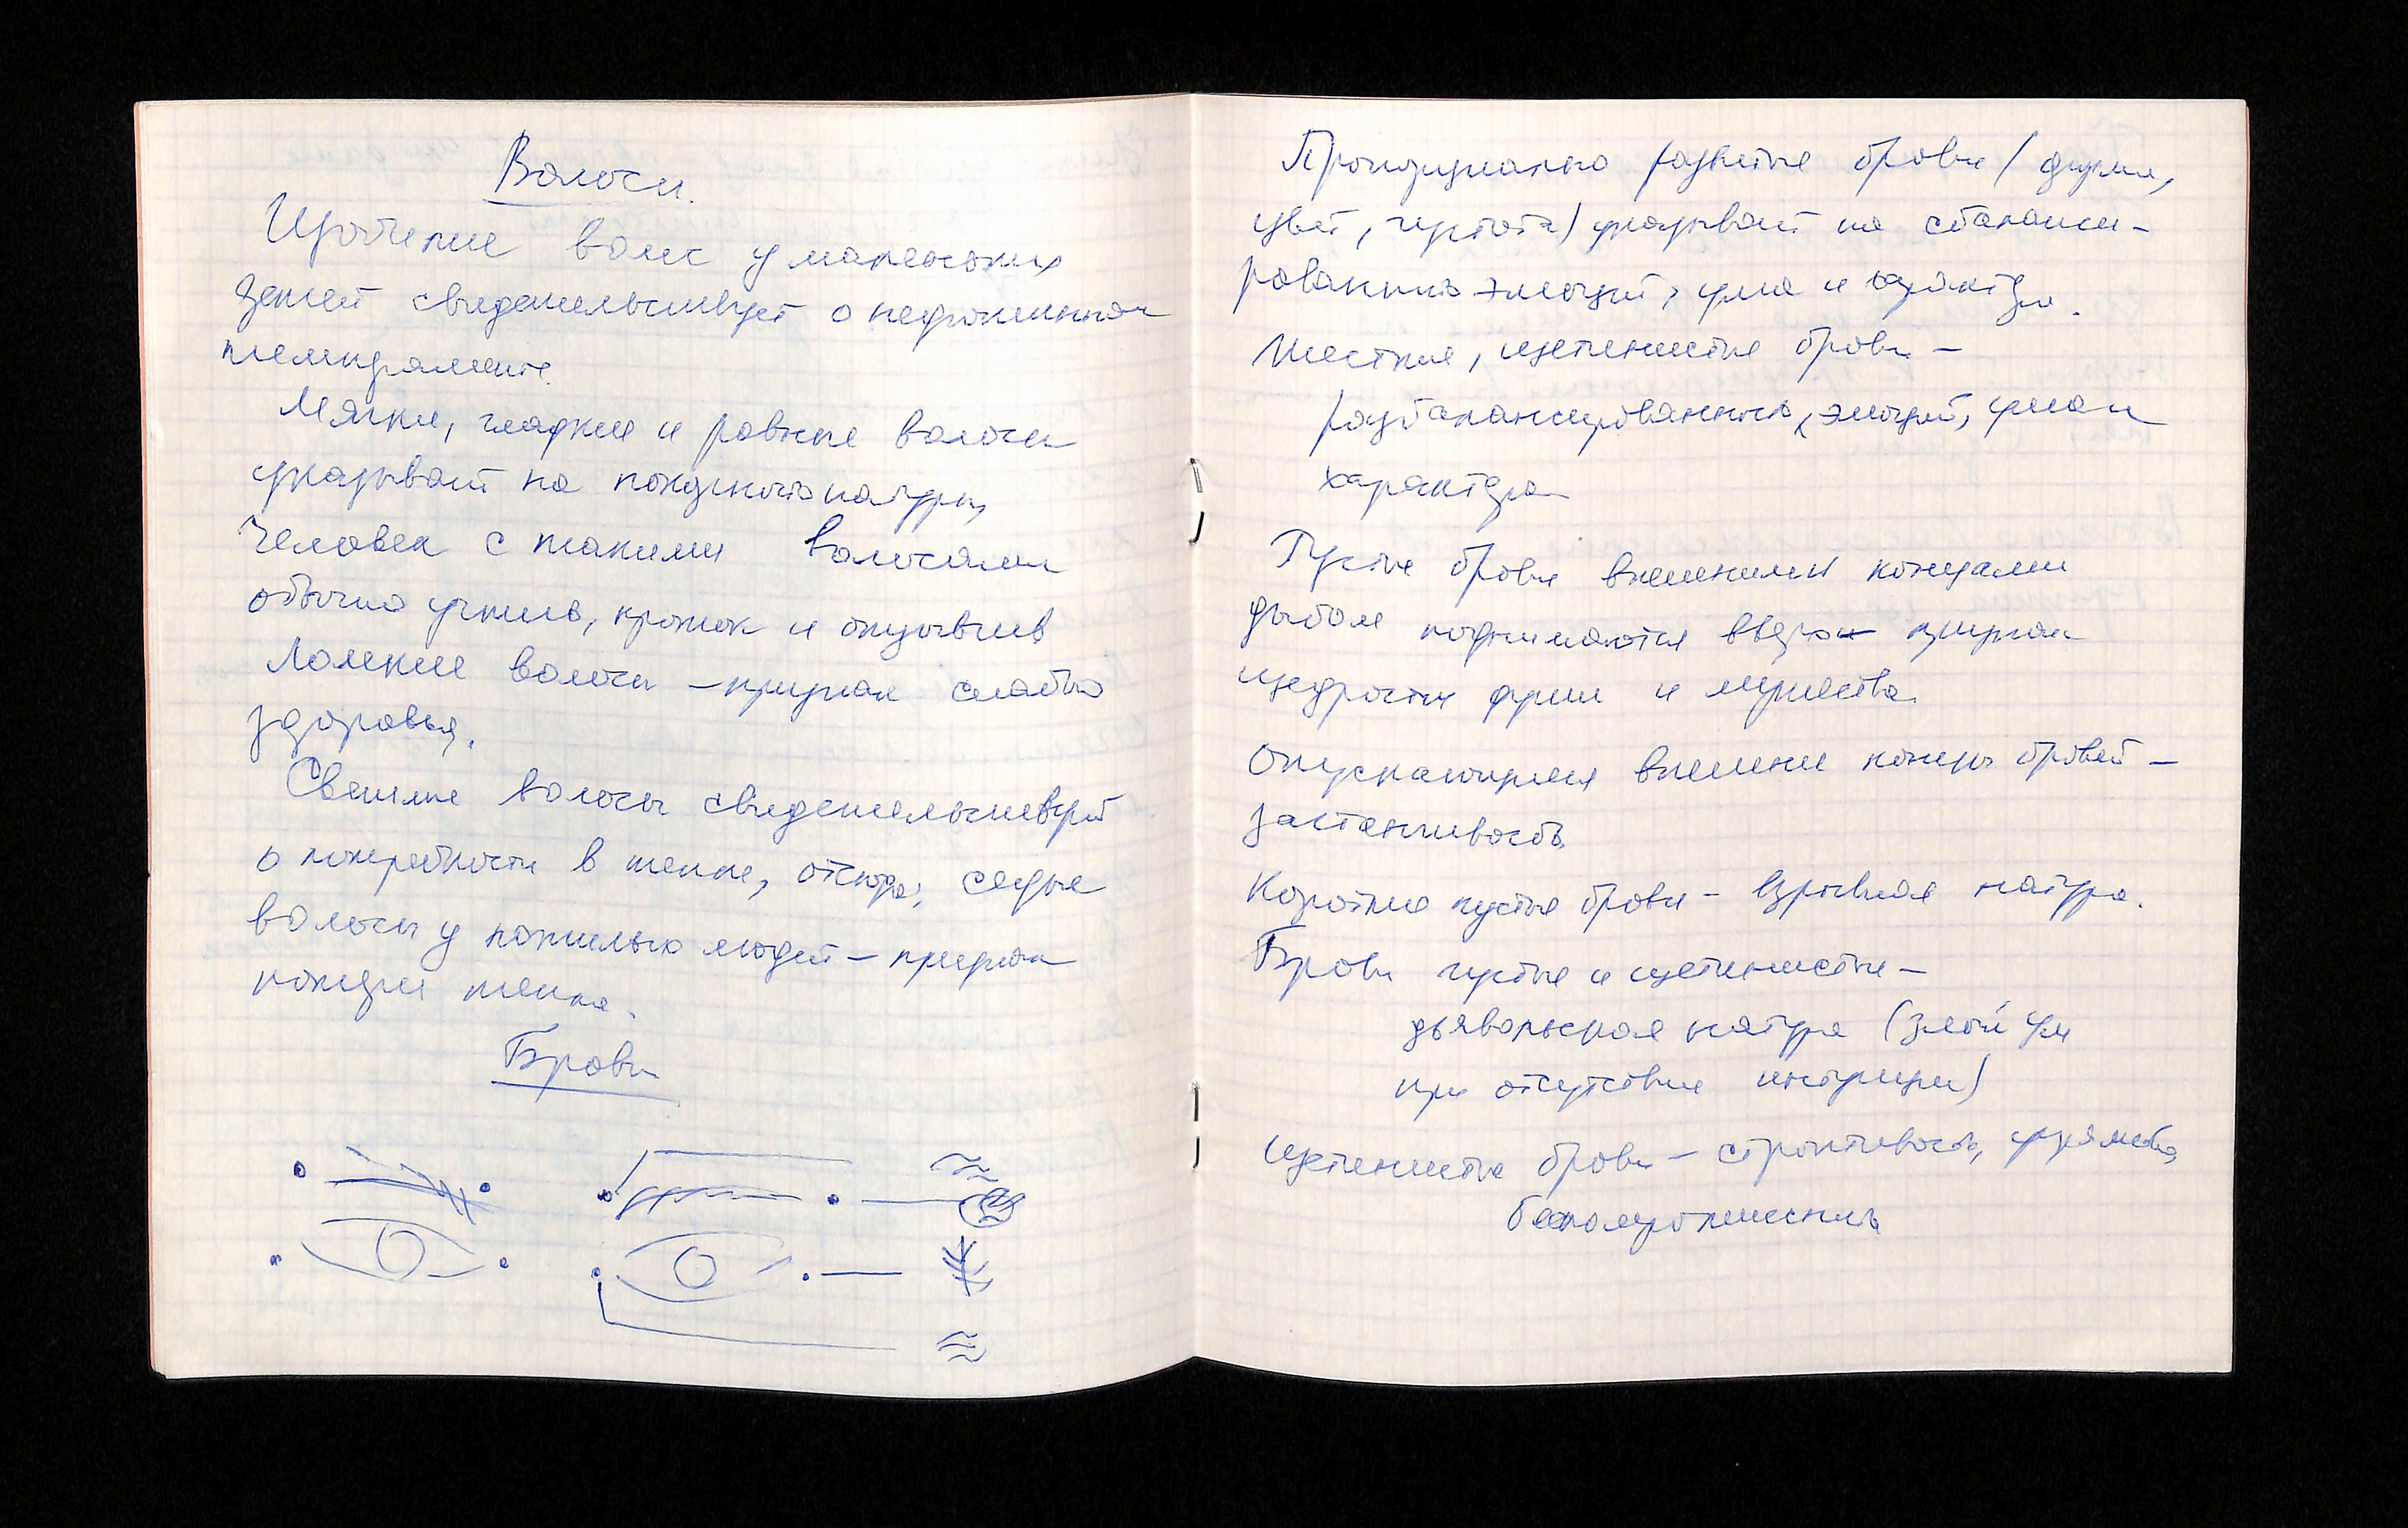 Волосы.
Изобилие волос у маленьких
детей свидетельствует о недюжинном
темпераменте.
Мягкие, гладкие и ровные волосы
указывают на нежную натуру,
Человек с такими волосами
обычно учтив, кроток и отзывчив
Ломкие волосы – признак слабого
здоровья.
Светлые волосы свидетельствуют
о потребности в тепле, отсюда: седые
волосы у пожилых людей – признак
нужды тепла.
Брови
Пропорционально развитые брови (форма,
цвет, густота) указывают на сбаланси-
рованность эмоций, ума и характера.
Жесткие, щетинистые брови –
разбалансированность эмоций, ума и
характера
Густые брови внешними концами
дыбом поднимаются вверх признак
щедрости души и мужества.
Опускающиеся внешние концы бровей –
застенчивость
Короткие густые брови – взрывная натура.
Брови густые и щетинистые –
дьявольская натура (злой ум
при отсутствии интуиции)
Щетинистые брови – строптивость, упрямство,
бескомпромиссность